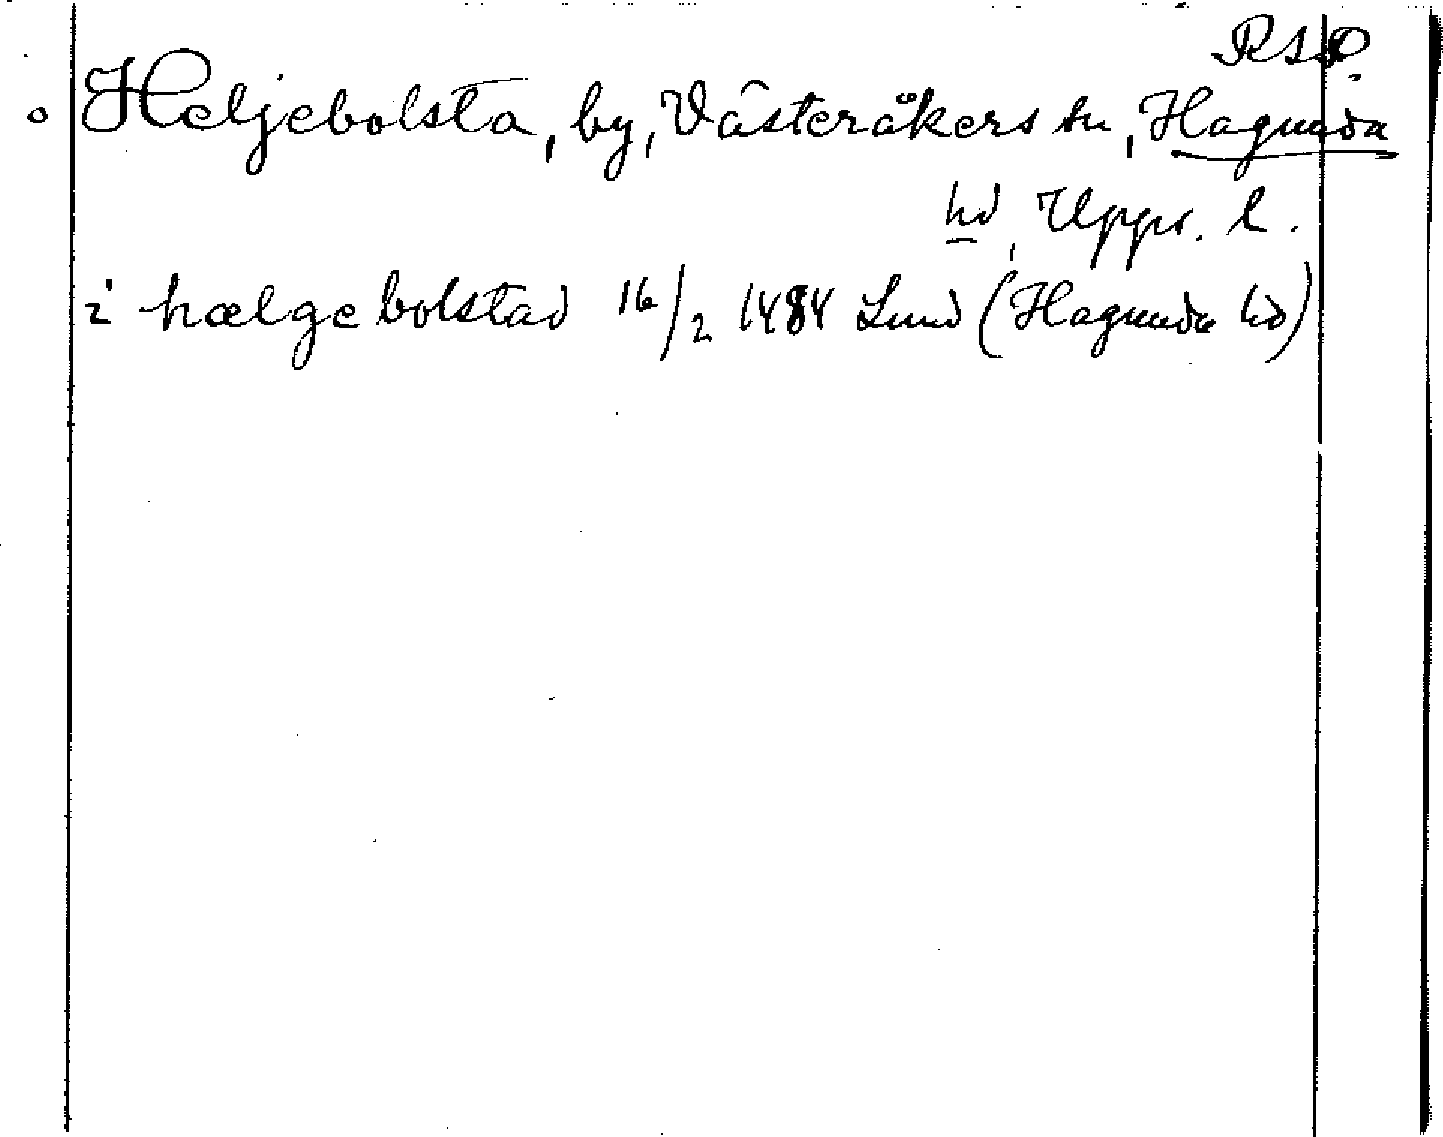 RSP
Heljebolsta, by, Västeråkers sn, Hagunda
hd, Upps. l.
i hælgebolstad 16/2 1484 Lund (Hagunda hd)